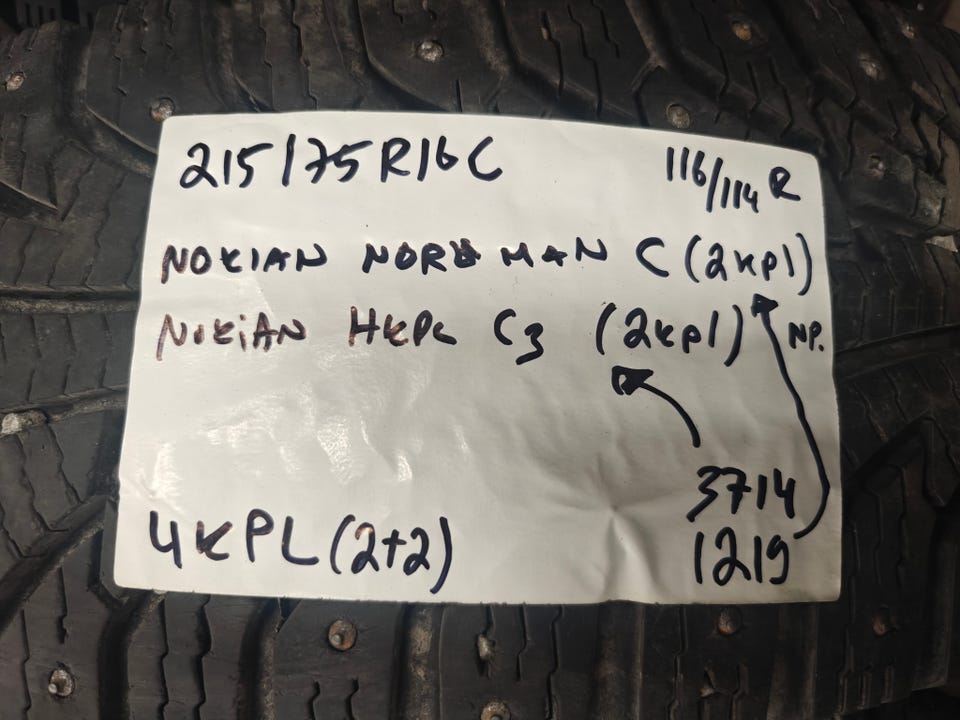 215/75R16C 116/114 R
NOKIAN NORDMAN C (2kpl)
NOKIAN HKPL C3 (2kpl) NP.
3714
4KPL (2+2) 1219